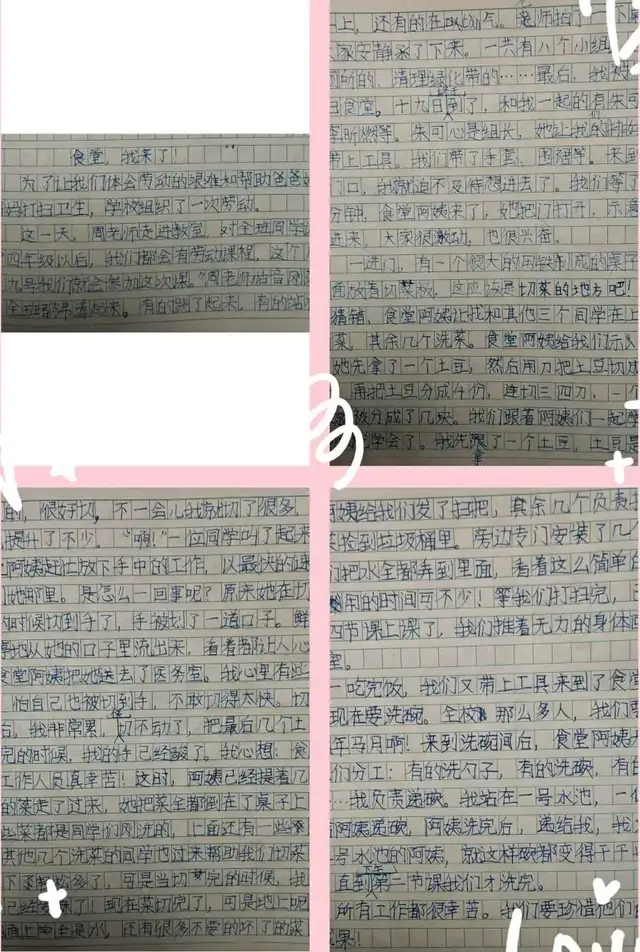 食堂，我来了！
为了让我们体会劳动的艰难和帮助爸爸
妈打扫卫生，学校组织了一次劳动。
这一天，周老师走进教室，对全班同学
四年级以后，我们都会有劳动课程，这个
九号我们就会参加这次课。”周老师话音刚
全班都沸腾起来。有的跳了起来，有的站
上，还有的在
家安静了下来。一共有八个小组
厕所的，清理绿化带的……最后，我被
食堂。十九日到了，和我一起的有朱可
等。朱可心是组长，她让我们
带上工具。我们带了手套、围裙等。来
门口，我就迫不及待想进去了。我们等了
分钟，食堂阿姨来了，她把门打开，示意
进来，大家很激动，也很兴奋。
一进门，有一个很大的用铁制成的桌子
面放着切菜板，这应该是切菜的地方吧！
猜错，食堂阿姨让我和其他三个同学在上
菜，其余几个洗菜。食堂阿姨给我们示
她先拿了一个土豆，然后用刀把土豆切成
再把土豆分成4份，连切三四刀，一个
被分成了几块。我们跟着阿姨们一起学
学会了。我先拿了一个土豆，土豆是
的，很好切，不一会儿我就切了很多，
提升了不少。“啊！”一位同学叫了起来
阿姨赶忙放下手中的工作，以最快的速
她那里。是怎么一回事呢？原来她在切
的时候切到手了，手被划了一道口子。鲜
地从她的口子里流出来，看着都让人心
食堂阿姨把她送去了医务室。我心里有些
怕自己也被切到手，不敢切得太快。切
后，我非常累，切不动了，把最后几个土
完的时候，我的手已经酸了。我心想：食
工作人员真辛苦！这时，阿姨已经提着几
的菜走了过来，她把菜全都倒在了桌子上
些菜都是同学们刚洗的，上面还有一些
其他几个洗菜的同学也过来帮助我们切菜
多了，可是当切完的时候，我
了！现在菜切完了，可是地上呢
面上全是水，还有很多不要的坏了的菜
阿姨给我们发了扫把，其余几个负责
捡到垃圾桶里。旁边专门安装了几
们把水全都弄到里面，看着这么简单
用的时间可不少！等我们打扫完，
四节课上课了，我们推着无力的身体
室。
一吃完饭，我们又带上工具来到了食
现在要洗碗。全校那么多人，我们
年马月啊！来到洗碗间后，食堂阿姨
们分工：有的洗勺子，有的洗碗，有的
……我负责递碗。我站在一号水池，一
阿姨递碗，阿姨洗完后，递给我，我
号水池的阿姨，就这样碗都变得干干
直到下午第一节课我们才洗完。
所有工作都很辛苦。我们要珍惜他们
果！